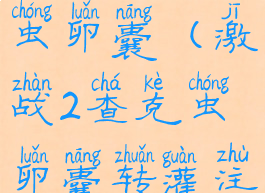 chóng luǎn náng jī
虫卵囊(激
zhàn chá kè chóng
战2查克虫
luǎn náng zhuǎn guàn zhù
卵囊转灌注